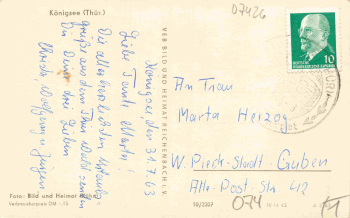 Königsee (Thür.)
07426
Königsee, den 31.7.63
Liebe Tante Marta!
Die allerherzlichsten Urlaubs-
grüße aus dem Thür. Wald senden
Dir Deine drei Lieben
Wolfgang u. Jürgen
Foto: Bild und Heimat
Verbraucherpreis DM -,15
VEB BILD UND HEIMAT REICHENBACH i. V.
DEUTSCHE DEMOKRATISCHE REPUBLIK
10
An Frau
Marta Herzog
W.-Pieck-Stadt-Guben
Alte-Post Str. 42
074